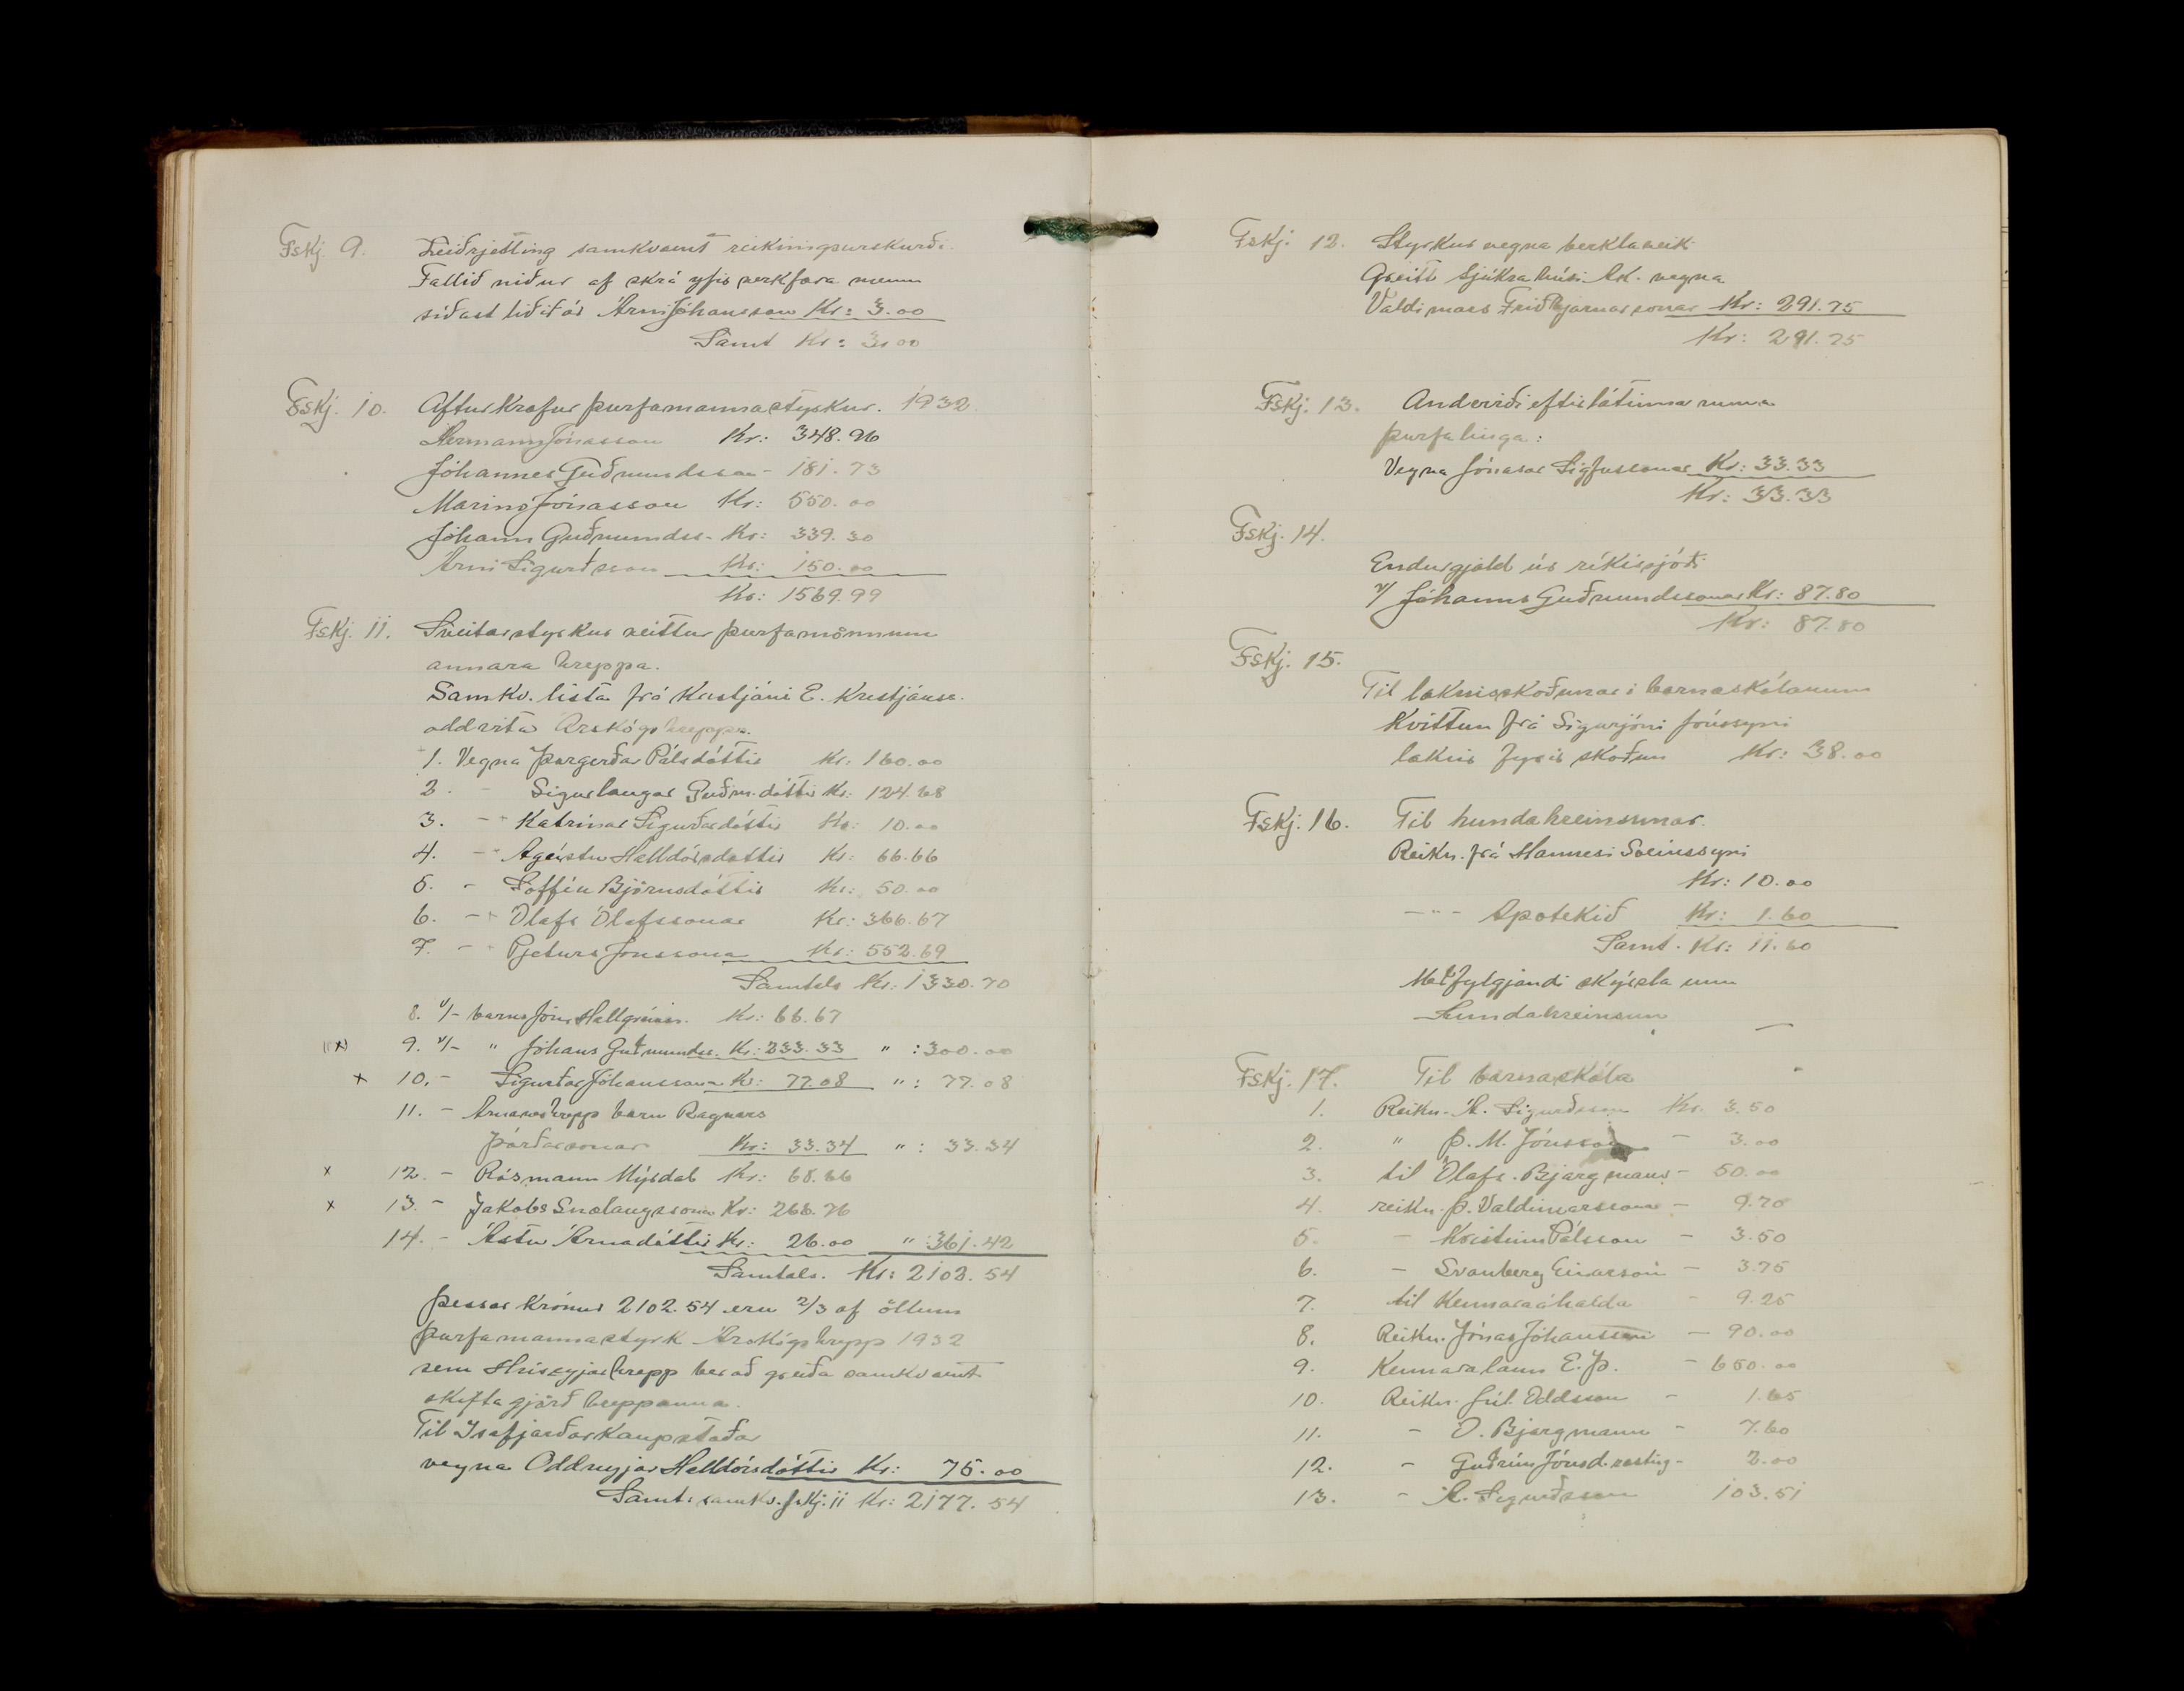 Fskj. 9. Leiðrjetting samkvæmt reikningsurskurði.
Fallið niður af skrá yfir verkfæra menn
síðast liðið ár Árni Jóhansson Kr: 3.00
Samt Kr: 3.00
Fskj. 10. Afturkræfur þurfamannastyrkur. 1932
Hermann Jónasson Kr: 348.96
Jóhannes Guðmundsson - 181.73
Marinó Jónasson Kr: 550.00
Jóhann Guðmundss- Kr: 339.30
Árni Sigurðsson Kr: 150.00
Kr: 1569.99
Fskj. 11. Sveitarstyrkur veittur þurfamönnum
annara hreppa.
Samkv. lista frá Kristjáni E. Kristjánss.
oddvita Árskógshrepps.
1. Vegna Þorgerðar Pálsdóttir Kr: 160.00
2. - Sigurlaugar Guðm.dóttir Kr: 124.68
3. -"- Katrínar Sigurðardóttir Kr: 10.00
4. -"- Ágústu Halldórsdóttir Kr: 66.66
5. - Soffíu Björnsdóttir Kr: 50.00
6. -"- Ólafs Ólafssonar Kr: 366.67
7. -"- Pjeturs Jónssona Kr: 552.69
Samtals Kr: 1330.70
8. v/- barns Jóns Hallgríms. Kr: 66.67
9. v/- " Jóhans Guðmundss. Kr: 233.33 " : 300.00
x 10. - Sigurðar Jóhanssonar Kr: 77.08 " : 77.08
11. - Arnarneshrepp barn Ragnars
Þórðarsonar Kr: 33.34 " : 33.34
x 12. - Rósmann Mýrdal Kr: 68.66
x 13. - Jakobs Snælaugssonar Kr: 266.76
14. - Ástu Árnadóttir Kr: 26.00 " 361.42
Samtals. Kr: 2102.54
Þessar Krónur 2102.54 eru 2/3 af öllum
þurfamannastyrk Árskógshrepp 1932
sem Hríseyjarhrepp ber að greiða samkvæmt
skiftagjörð hreppanna.
Til Ísafjarðarkaupstaðar
vegna Oddnyjar Halldórsdóttir Kr: 75.00
Samt: samkv. fskj. 11 Kr: 2177.54
Fskj. 12. Styrkur vegna berklaveik.
Greitt Sjúkrahúsi Ak. vegna
Valdimars Friðbjarnarsonar Kr: 291.75
Kr: 291.75
Fskj. 13. Andvirði eftirlátinna muna
þurfalinga:
Vegna Jónasar Sigfussonar Kr: 33.33
Kr: 33.33
Fskj. 14.
Endurgjald úr ríkissjóði
v/ Jóhanns Guðmundssonar Kr: 87.80
Kr: 87.80
Fskj. 15.
Til læknisskoðunar í barnaskólanum
Kvittun frá Sigurjóni Jónssyni
læknir fyrir skoðun Kr: 38.00
Fskj. 16. Til hundahreinsunar.
Reikn. frá Hannesi Sveinssyni
Kr: 10.00
-"- Apotekið Kr: 1.60
Samt. Kr: 11.60
Meðfylgjandi skýrsla um
hundahreinsun
Fskj. 17. Til barnaskóla
1. Reikn. Á. Sigurðsson Kr. 3.50
2. " Þ. M. Jónsson - 3.00
3. til Ólafs. Bjargmans - 50.00
4. reikn. Þ. Valdimarssonar - 9.70
5. - Kristinn Pálsson - 3.50
6. - Svanberg Einarson - 3.75
7. til Kennaraáhalda - 9.25
8. Reikn. Jónas Jóhannsson - 90.00
9. Kennaralaun E. Þ. - 650.00
10. Reikn. Júl. Oddsson - 1.65
11. - O. Bjargmann - 7.60
12. - Guðrún Jónsd. ræsting - 2.00
13. - Á. Sigurðsson 103.51